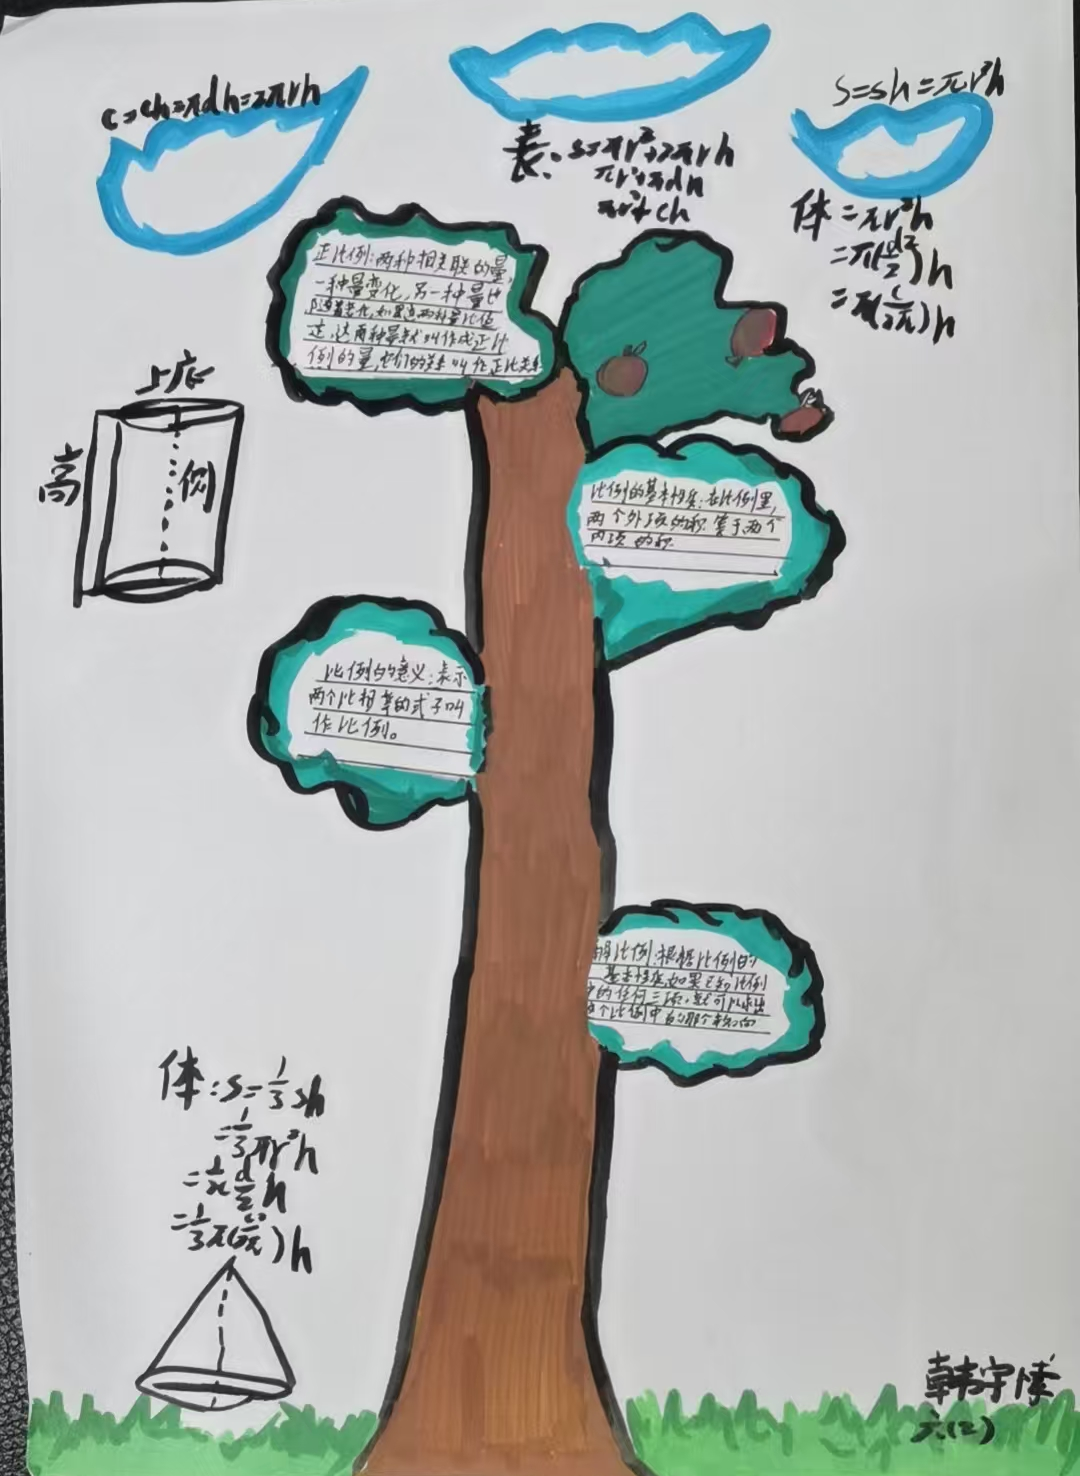 c=ch=πdh=2πrh
表:s=πr²+2πrh
πr²+πdh
πr²+ch
s=sh=πr²h
体=πr²h
=π(d/2)²h
=π(c/2π)h
正比例:两种相关联的量,
一种量变化,另一种量也
随着变化,如果这两种量比值
定,这两种量就叫作成正比
例的量,它们的关系叫作正比关系
上底
高
侧
比例的基本性质:在比例里,
两个外项的积等于两个
内项的积
比例的意义:表示
两个比相等的式子叫
作比例。
解比例:根据比例的
基本性质,如果已知比例
中的任何三项,就可以求出
个比例中的那个
体:s=1/3sh
=1/3πr²h
=1/π d/2 h
=1/3π(c/2π)h
韩宇
六(2)